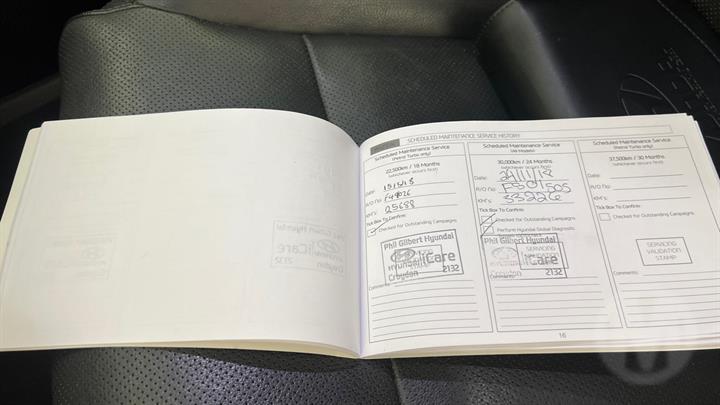 SCHEDULED MAINTENANCE SERVICE HISTORY
Scheduled Maintenance Service
(Petrol Turbo only)
22,500km / 18 Months
(whichever occurs first)
Date:
R/O No:
KM's: 25688
Tick Box To Confirm:
Checked for Outstanding Campaigns
Phil Gilbert Hyundai
iCare
Croydon 2132
Comments:
Scheduled Maintenance Service
(All Models)
30,000km / 24 Months
(whichever occurs first)
Date:
R/O No:
KM's: 33226
Tick Box To Confirm:
Checked for Outstanding Campaigns
Perform Hyundai Global Diagnostic
Phil Gilbert Hyundai
SERVICING
VALIDATION
iCare
2132
Comments:
Scheduled Maintenance Service
(Petrol Turbo only)
37,500km / 30 Months
(whichever occurs first)
Date:
R/O No:
KM's:
Tick Box To Confirm:
Checked for Outstanding Campaigns
SERVICING
VALIDATION
STAMP
Comments:
16